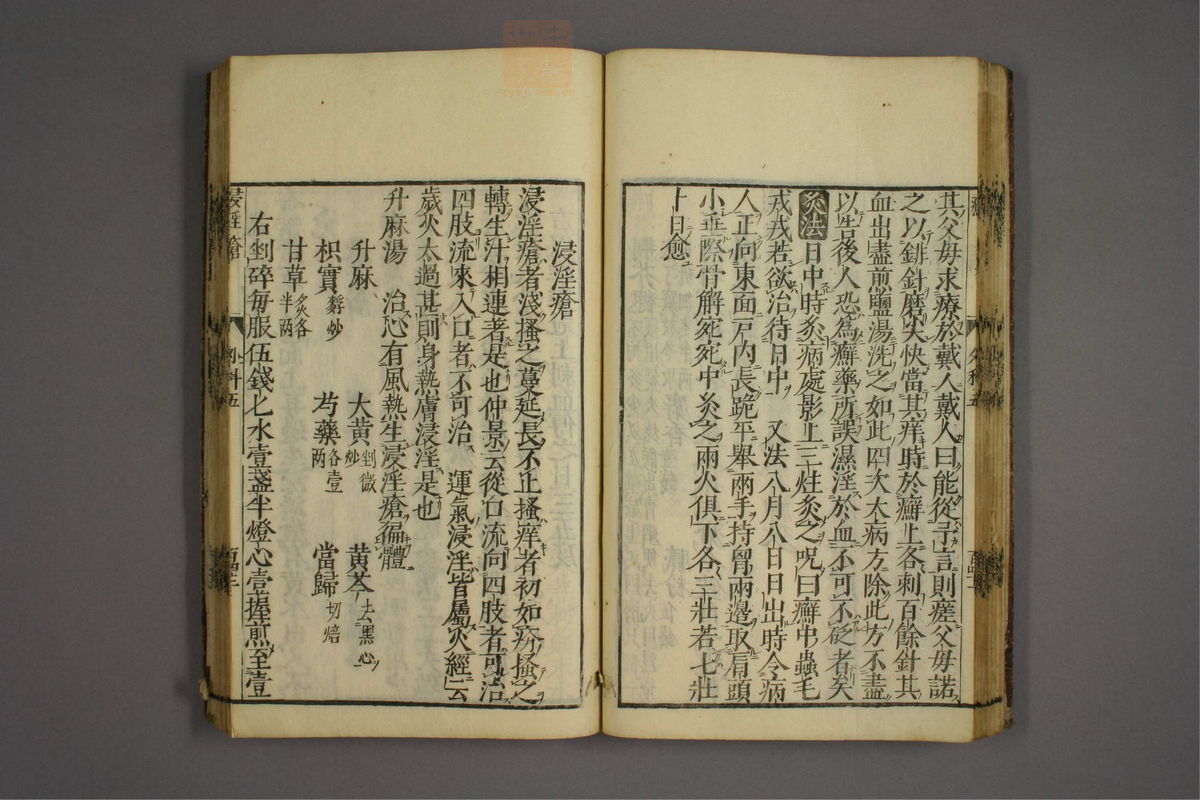 其父母求療於戴人戴人曰能從予言則瘥父母諾
之以銔針磨尖快當其痒時於癬上各刺百餘針其
血出盡煎鹽湯洗之如此四次大病方除此方不盡
以告後人恐為癬藥所誤濕淫於血不可不砭者矣
灸法 日中時灸病處影上三炷灸之咒曰癬中蟲毛
戎戎若欲治待日中 又法八月八日日出時令病
人正向東面戸內長跪平舉兩手持胷兩邊取肩頭
小垂際骨解宛宛中灸之兩火俱下各三壯若七壯
十日愈
浸淫瘡
浸淫瘡者淺搔之蔓延長不止搔痒者初如疥搔之
轉生汁相連者是也仲景云從口流向四肢者可治
四肢流來入口者不可治 運氣浸淫皆屬火經云
歲火太過甚則身熱膚浸淫是也
升麻湯 治心有風熱生浸淫瘡徧體
升麻 大黃剉微炒 黄芩去黑心
枳實麩炒 芍藥各壹兩 當歸切焙
甘草炙各半兩
右剉碎每服伍錢匕水壹盞半燈心壹握煎至壹
浸淫瘡 外科五